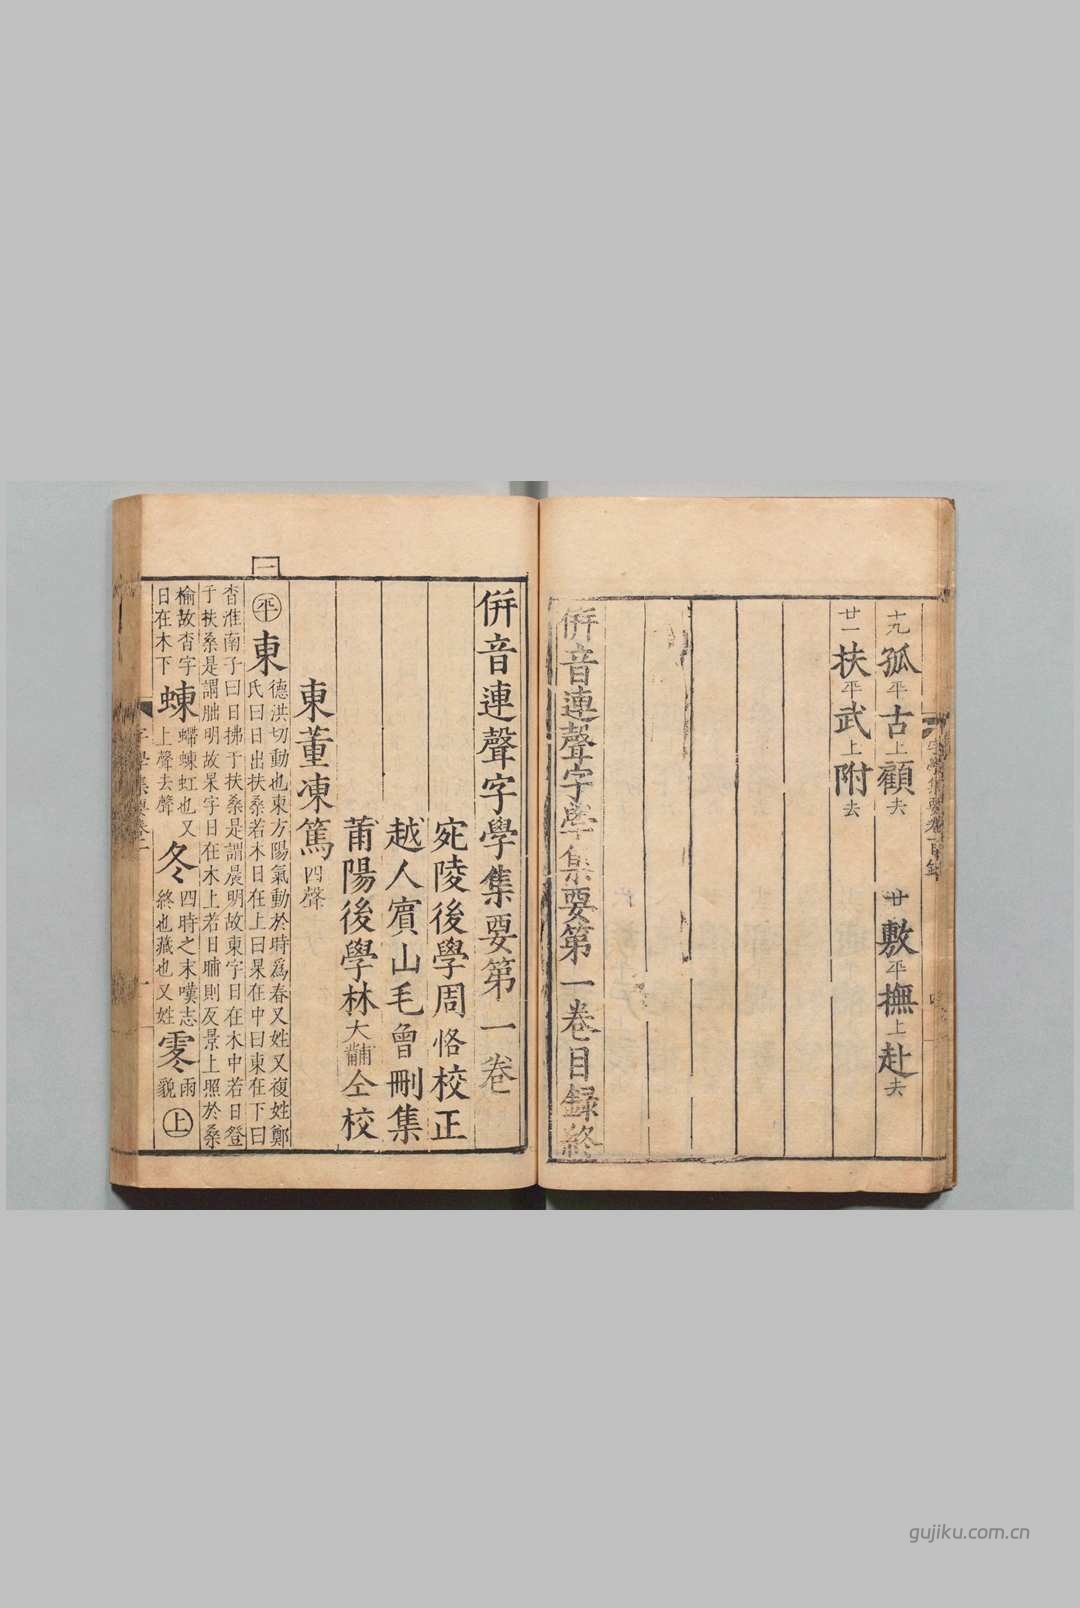 十九孤平古上顧去 廿敷平撫上赴去
廿一扶平武上附去
併音連聲字學集要第一卷目録終
併音連聲字學集要第一卷
宛陵後學周恪校正
越人賓山毛曾刪集
莆陽後學林大黼仝校
東董凍篤四聲
一
平東德洪切動也東方陽氣動於時爲春又姓又複姓鄭
氏曰日出扶桑若木日在上曰杲在中曰東在下曰
杳淮南子曰日拂于扶桑是謂晨明故東字日在木中若日登
于扶桑是謂朏明故杲字日在木上若日晡則反景上照於桑
榆故杳字
日在木下
蝀螮蝀虹也又
上聲去聲
冬四時之末嘆志
終也藏也又姓
零雨
貌
上
gujiku.com.cn